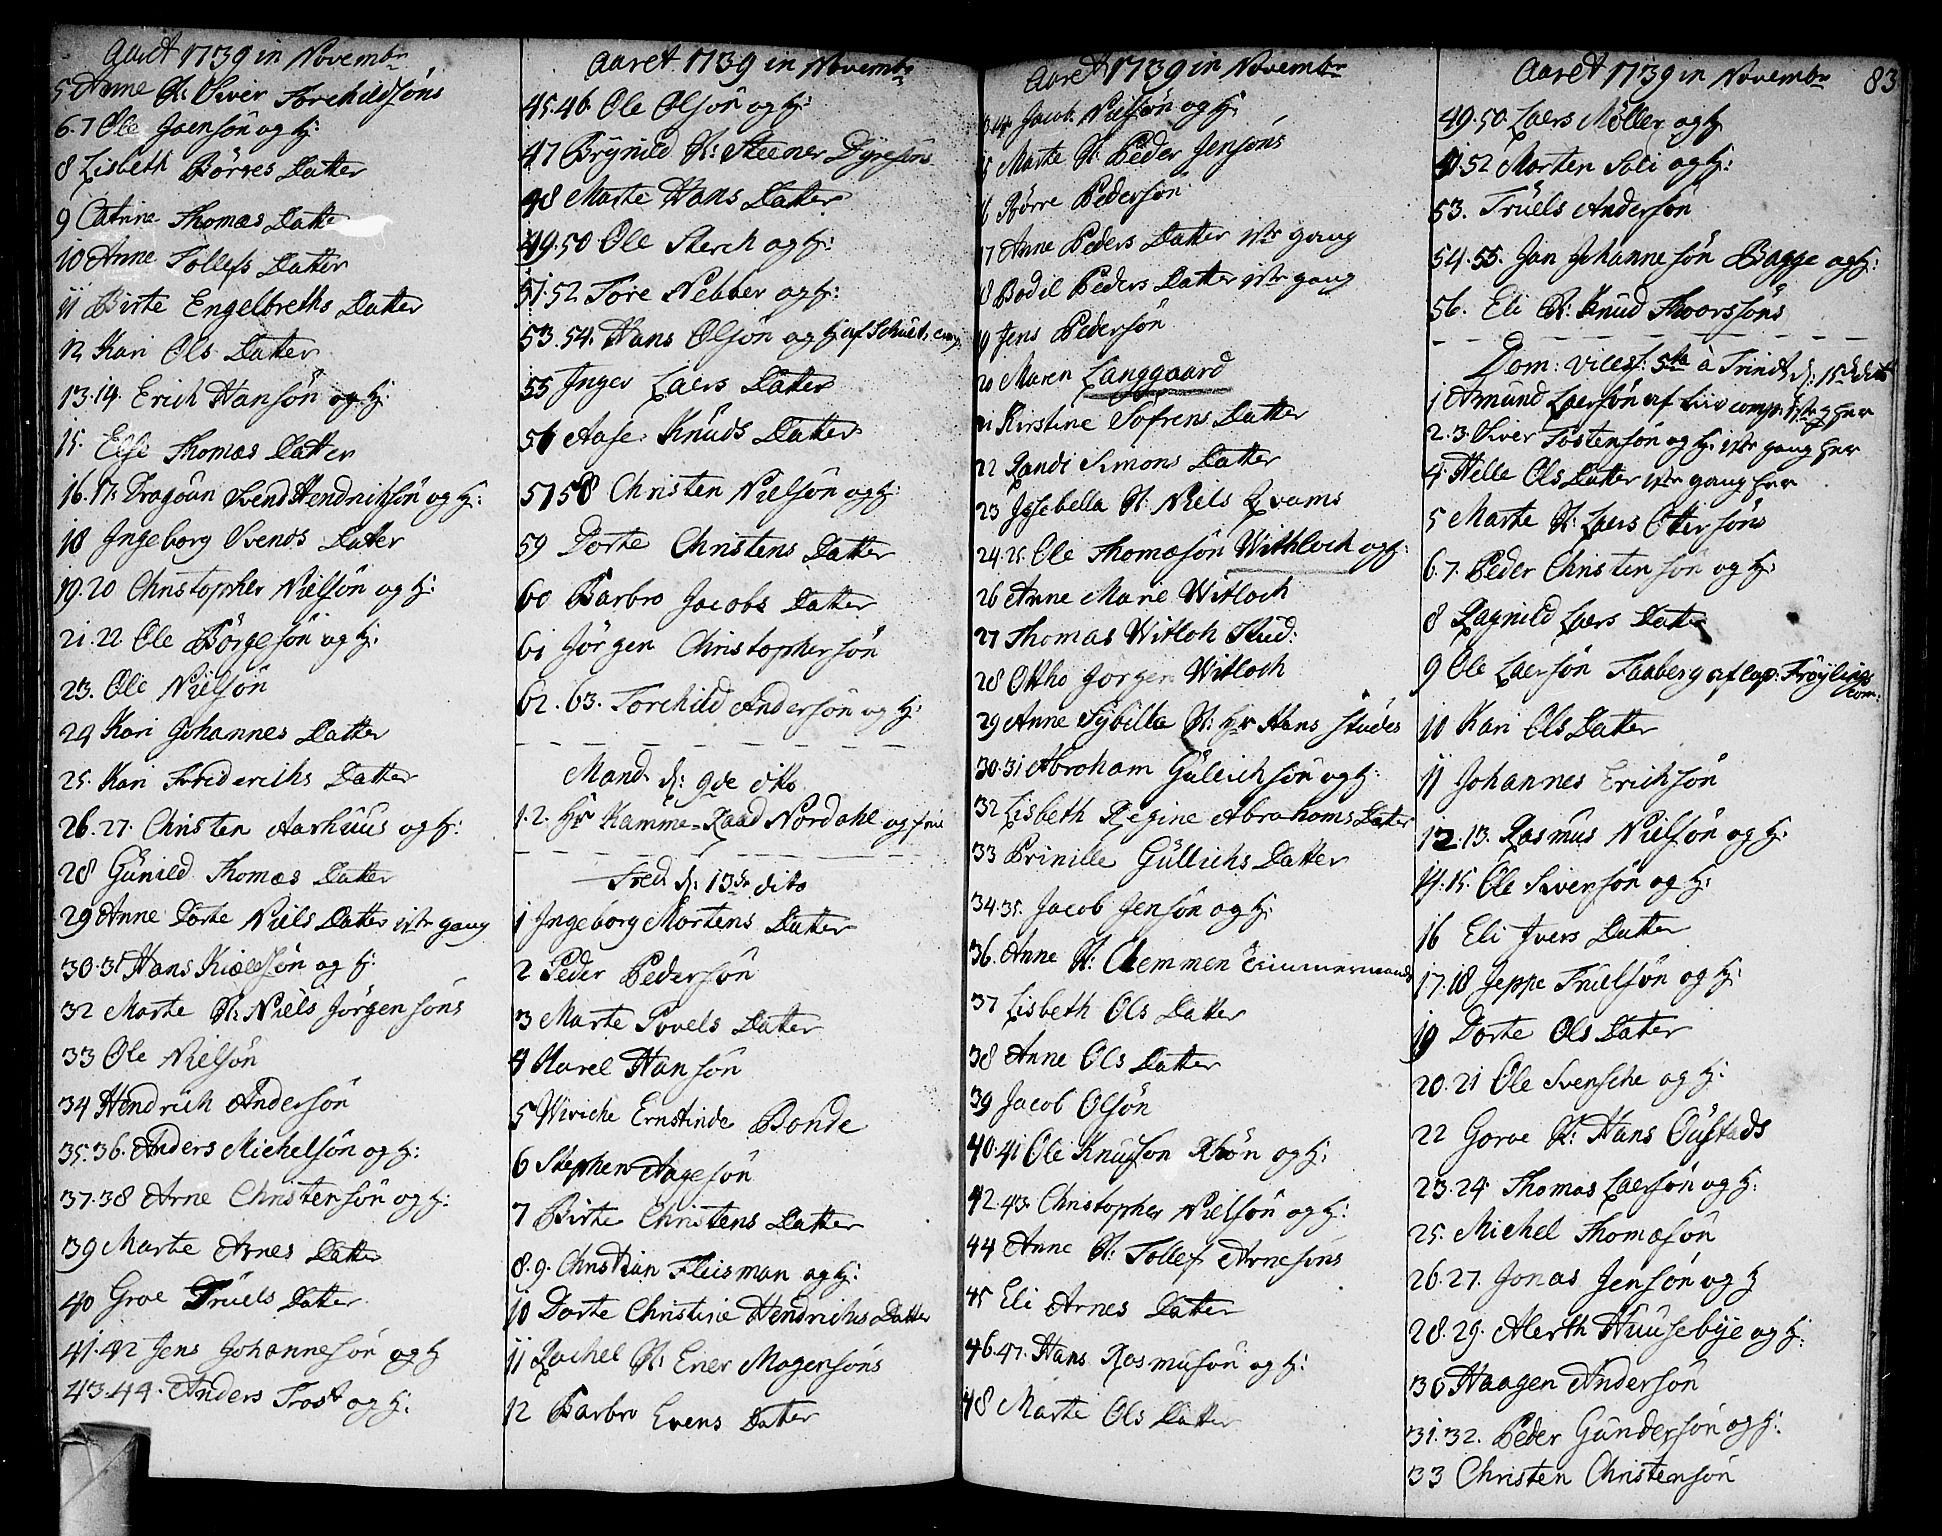 Aaret 1739 in Novembr
5 Anne K: Siver Torchildsöns
6.7 Ole Joensön og H:
8 Lisbeth Börres Datter
9 Catrine Thomæs Datte
10 Anne Tollefs Datter
11 Birte Engelbreths Datter
12 Kari Ols Datter
13.14. Erich Hansön og H:
15. Else Thomæs Datter
16.17. Dragoun Svend Hendrichsön og H:
18 Ingeborg Svends Datter
19.20 Christopher Nielsön og H:
21.22 Ole Börgesön og H:
23. Ole Nielsön
24 Kari Johannes Datter
25. Kari Friderichs Datter
26.27. Christen Aarhuus og H:
28 Gunild Thomæs Datter
29 Anne Dorte Niels Datter 1ste gang
30.31 Hans Kieldsön og H:
32 Marte K: Niels Jörgensöns
33 Ole Nielsön
34 Hendrich Andersön
35.36. Anders Michelsön og H:
37.38 Arne Christensön og H:
39 Marte Arnes Datter
40 Groe Truels Datter
41.42 Jens Johannesön og H
43.44. Anders Trost og H:
Aaret 1739 in Novembr
45.46. Ole Olsön og H:
47 Brynild K: Steener Dyresöns
48 Marte Hans Datter
49.50 Ole Sterch og H:
51.52 Tore Nebber og H:
53.54. Hans Olsön og H: af Schult. comp.
55 Inger Laers Datter
56 Aase Knuds Datter
57 58 Christen Nielsön og H:
59 Dorte Christens Datter
60 Barbro Jacobs Datter
61 Jörgen Christophersön
62.63. Torchild Andersön og H:
Mand. d: 9de dito
1.2. Hr Kamme-Raad Nordahl og frue
Fred. d: 13de dito
1 Ingeborg Mortens Datter
2 Peder Pedersön
3 Marte Povels Datter
4 Karel Hansön
5 Wiviche Ernstinde Bonde
6 Stephen Aagesön
7 Birte Christens Datter
8.9. Christian Fleisman og H:
10 Dorte Christine Hendrichs Datter
11 Rachel K: Ener Mogensöns
12 Barbro Evens Datter
Aaret 1739 in Novembr
14. Jacob Nielsön og H:
15 Marte K: Peder Jensöns
16 Börre Pedersön
17 Anne Peders Datter 1ste gang
18 Bodil Peders Datter 1ste gang
19 Jens Pedersön
20 Maren Langgaard
21 Kirstine Sofrens Datter
22 Randi Simons Datter
23 Issebella K: Niels Qvams
24.25. Ole Thomæsön Withloch og H:
26 Anne Marie Witloch
27 Thomas Witloh Stud:
28 Ottho Jorgen Witloch
29 Anne Sybilla K: Hr Hans Studes
30.31 Abraham Gullichsön og H:
32 Lisbeth Regine Abrahams Datter
33 Prinille Gullichs Datter
34.35. Jacob Jensön og H:
36. Anne K: Clemmen Timmermands
37 Lisbeth Ols Datter
38 Anne Ols Datter
39 Jacob Olsön
40.41 Ole Knudson Rhön og H:
42.43. Christopher Nielsön og H:
44 Anne K: Tollef Arnesöns
45 Eli Arnes Datter
46.47. Hans Rasmusön og H:
48 Marte Ols Datter
Aaret 1739 in Novembr 83
49.50. Laers Möller og H
51.52 Morten Soli og H:
53. Truels Andersön
54.55. Jan Johannesön Bagge og H:
56. Eli K: Knud Thoorssöns
Dom: vices: 5ta à Trinit. d: 15de dito
1 Amund Laersön af Liv comp: 1ste g her
2.3. Siver Tostensön og H: 1ste gang her
4. Helle Ols Datter 1ste gang her
5 Marte K: Laers Ottersöns
6.7. Peder Christensön og H:
8 Ragnild Laers Datte
9 Ole Laersön Faaberg af Cap: Fröylings com:
10 Kari Ols Datter
11 Johannes Erichsön
12.13. Rasmus Nielsön og H:
14.15. Ole Siversön og H:
16 Eli Ivers Datter
17.18 Jeppe Truelsön og H:
19 Dorte Ols Datter
20.21 Ole Svensche og H:
22 Goroe K: Hans Oustads
23.24. Thomas Laersön og H:
25. Michel Thomæsön
26.27. Jonas Jensön og H
28.29. Alerth Huusebye og H:
30 Haagen Andersön
31.32. Peder Gundersön og H:
33 Christen Christensön